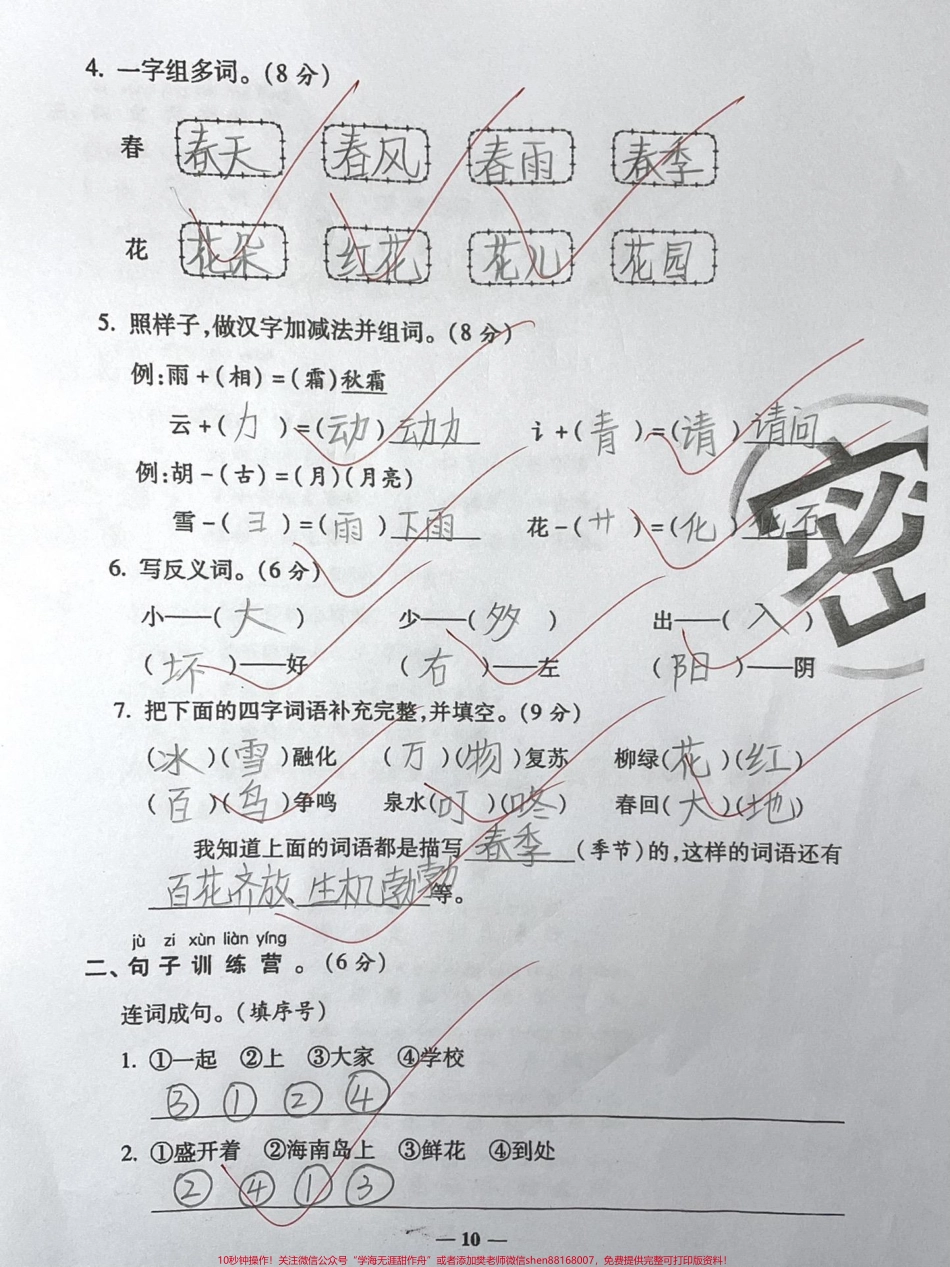 4. 一字组多词。(8分)
春 春天 春风 春雨 春季
花 花朵 红花 花儿 花园
5. 照样子,做汉字加减法并组词。(8分)
例:雨+(相)=(霜)秋霜
云+(力)=(动)动力 讠+(青)=(请)请问
例:胡-(古)=(月)(月亮)
雪-(彐)=(雨)下雨 花-(艹)=(化)化石
6. 写反义词。(6分)
小——(大) 少——(多) 出——(入)
(坏)——好 (右)——左 (阳)——阴
7. 把下面的四字词语补充完整,并填空。(9分)
(冰)(雪)融化 (万)(物)复苏 柳绿(花)(红)
(百)(鸟)争鸣 泉水(叮)(咚) 春回(大)(地)
我知道上面的词语都是描写春季(季节)的,这样的词语还有
百花齐放 生机勃勃等。
jù zi xùn liàn yíng
二、句子训练营。(6分)
连词成句。(填序号)
1. ①一起 ②上 ③大家 ④学校
③ ① ② ④
2. ①盛开着 ②海南岛上 ③鲜花 ④到处
② ④ ① ③
密
— 10 —
10秒钟操作！关注微信公众号“学海无涯甜作舟”或者添加樊老师微信shen88168007，免费提供完整可打印版资料！